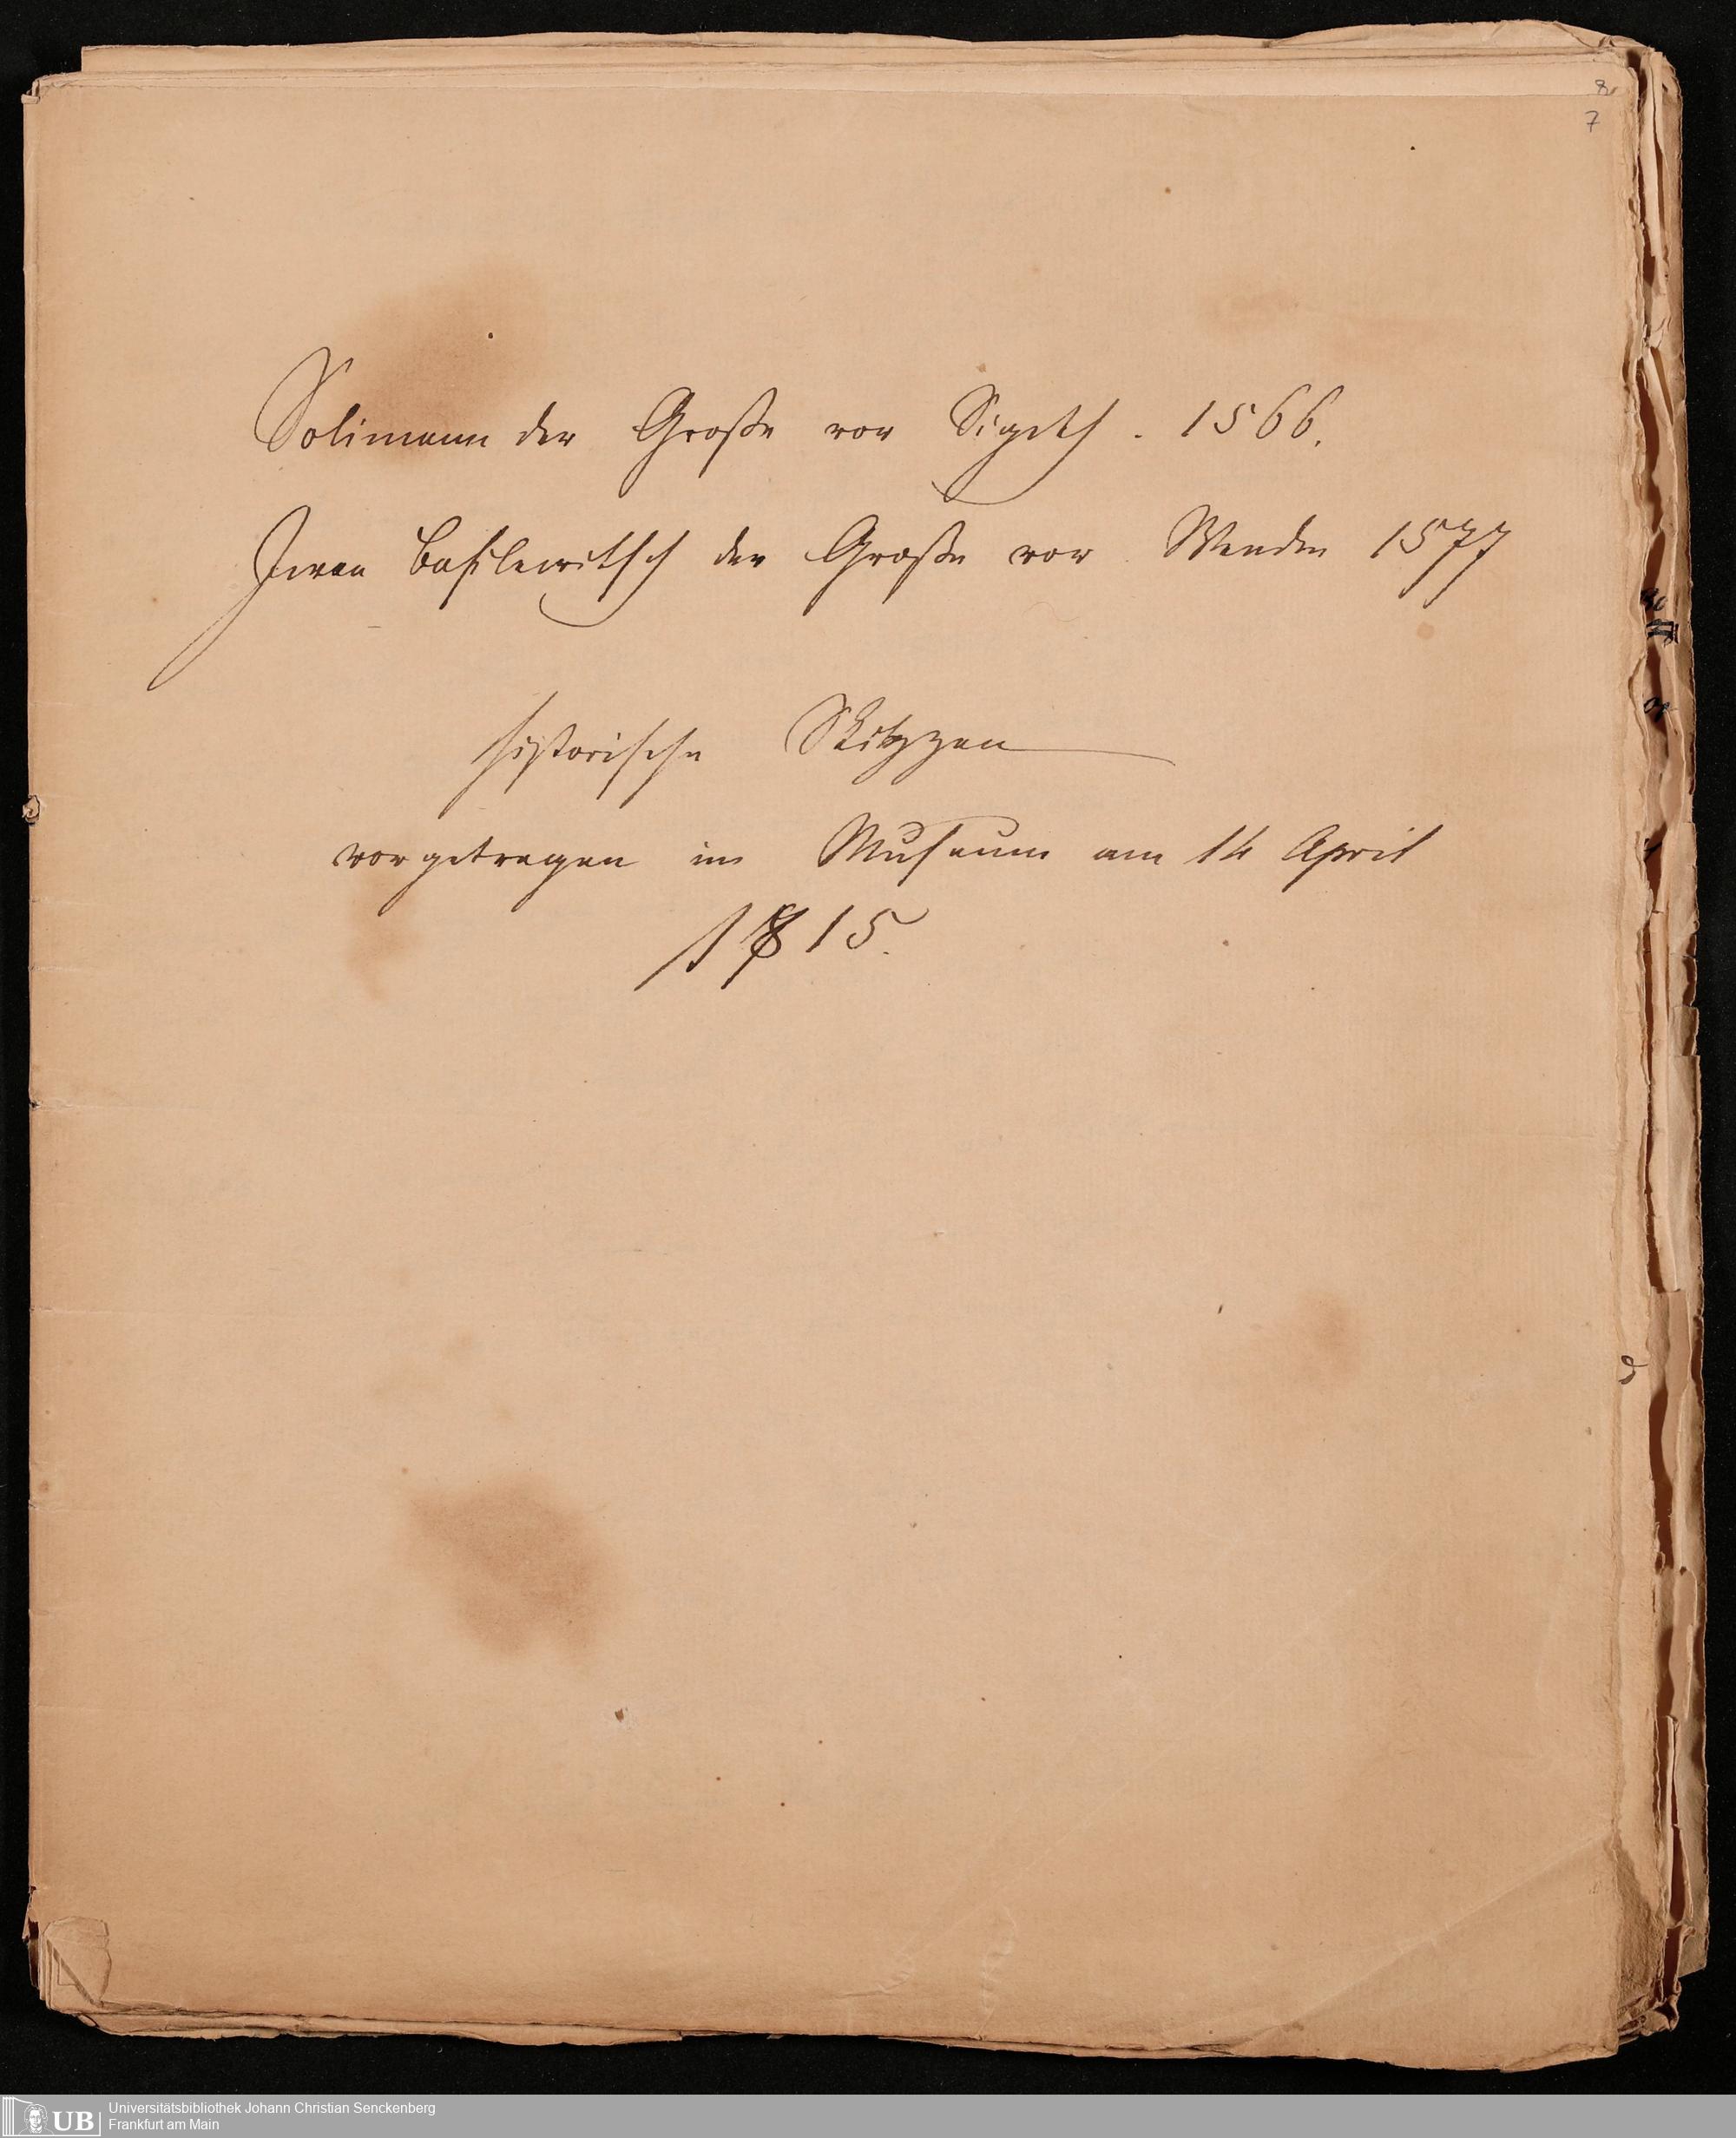 7
Solimann der Große vor Sigeth. 1566.
Iwan Basilewitsch der Große vor Wenden 1577
historische Skitzzen
vorgetragen im Museum am 14 April
1815.
UB Universitätsbibliothek Johann Christian Senckenberg
Frankfurt am Main